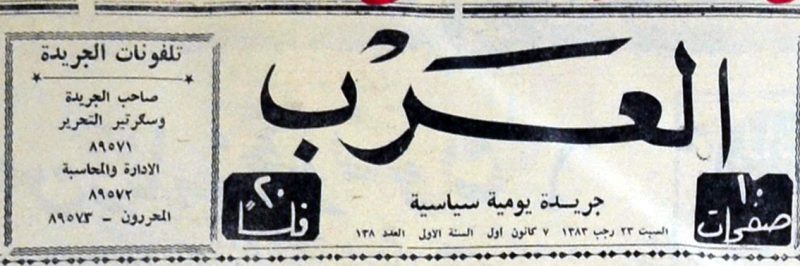 العرب
١٠
صفحات
جريدة يومية سياسية
٢٠
فلسًا
السبت ٢٣ رجب ١٣٨٣ ٧ كانون اول السنة الاولى العدد ١٣٨
تلفونات الجريدة
صاحب الجريدة
وسكرتير التحرير
٨٩٥٧١
الادارة والمحاسبة
٨٩٥٧٢
المحررون - ٨٩٥٧٣